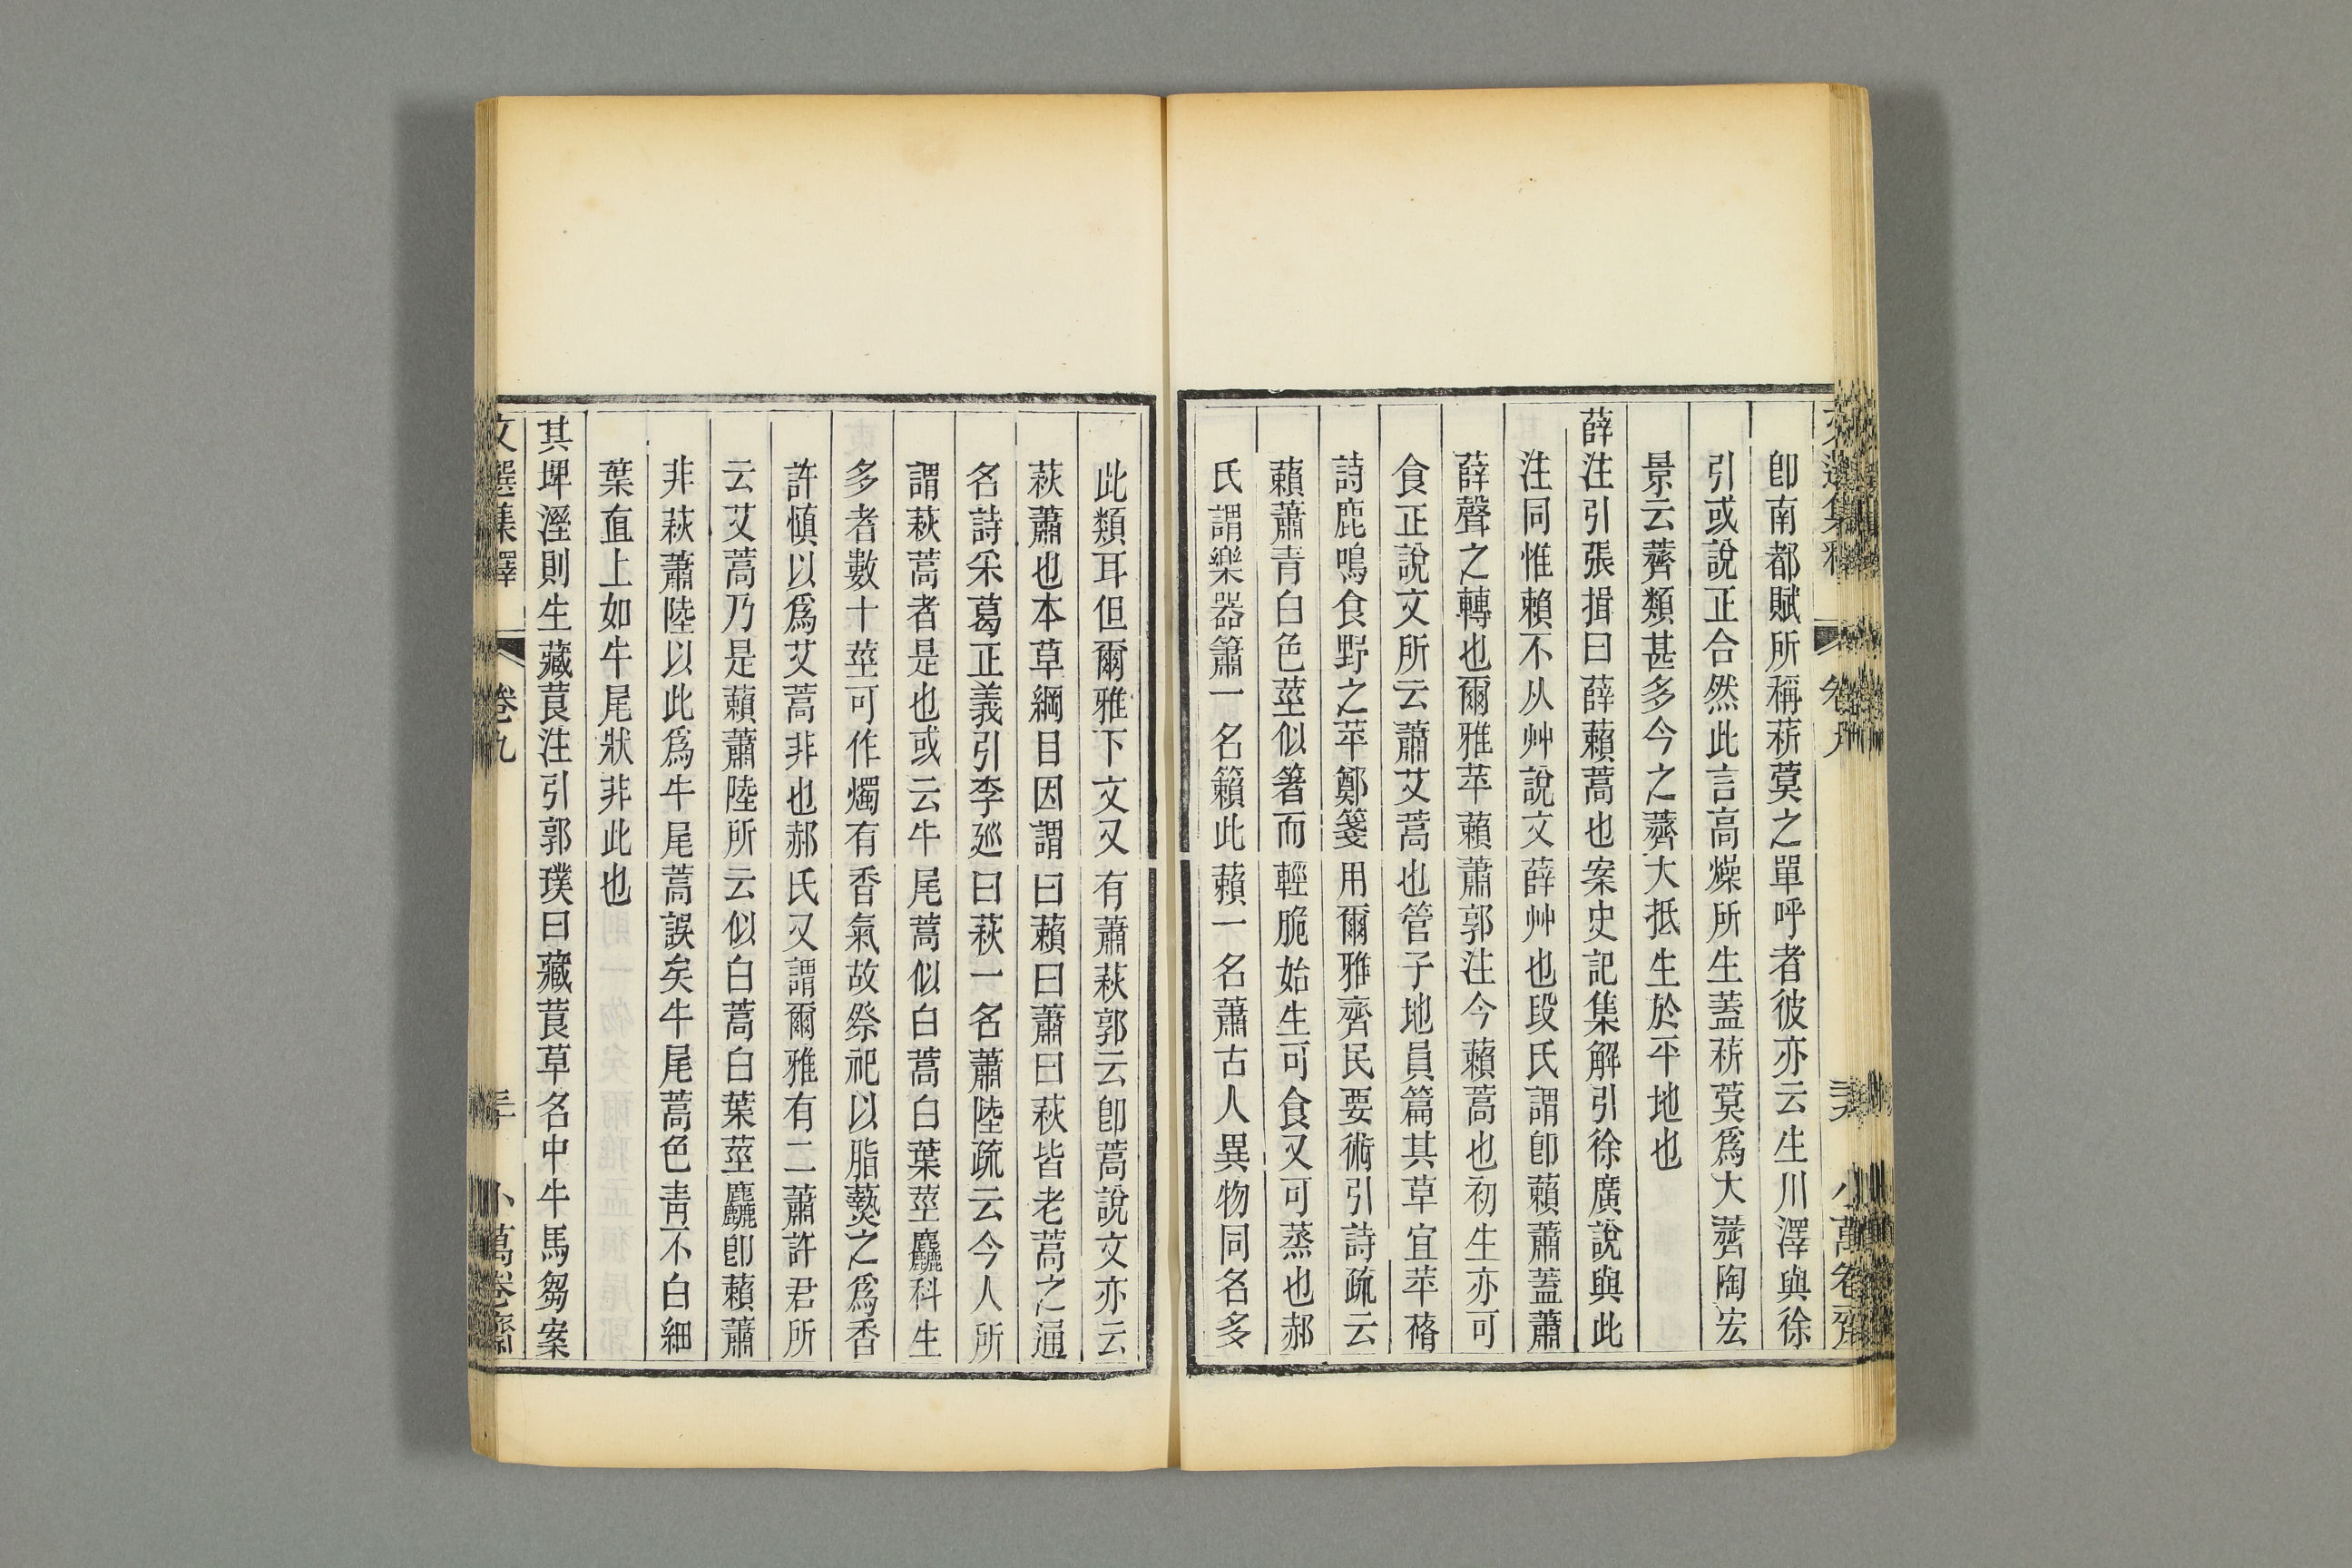 卽南都賦所稱菥蓂之單呼者彼亦云生川澤與徐
引或說正合然此言高燥所生蓋菥蓂爲大薺陶宏
景云薺類甚多今之薺大抵生於平地也
薛注引張揖曰薛藾蒿也案史記集解引徐廣說與此
注同惟賴不从艸說文薛艸也段氏謂卽藾蕭蓋蕭
薛聲之轉也爾雅苹藾蕭郭注今藾蒿也初生亦可
食正說文所云蕭艾蒿也管子地員篇其草宜苹蓨
詩鹿鳴食野之苹鄭箋用爾雅齊民要術引詩疏云
藾蕭青白色莖似箸而輕脆始生可食又可蒸也郝
氏謂樂器簫一名籟此藾一名蕭古人異物同名多
此類耳但爾雅下文又有蕭萩郭云卽蒿說文亦云
萩蕭也本草綱目因謂曰藾曰蕭曰萩皆老蒿之通
名詩采葛正義引李廵曰萩一名蕭陸疏云今人所
謂萩蒿者是也或云牛尾蒿似白蒿白葉莖麤科生
多者數十莖可作燭有香氣故祭祀以脂爇之爲香
許愼以爲艾蒿非也郝氏又謂爾雅有二蕭許君所
云艾蒿乃是藾蕭陸所云似白蒿白葉莖麤卽藾蕭
非萩蕭陸以此爲牛尾蒿誤矣牛尾蒿色青不白細
葉直上如牛尾狀非此也
其埤溼則生藏莨注引郭璞曰藏莨草名中牛馬芻案
文選集釋 卷九 三十 小萬卷齋